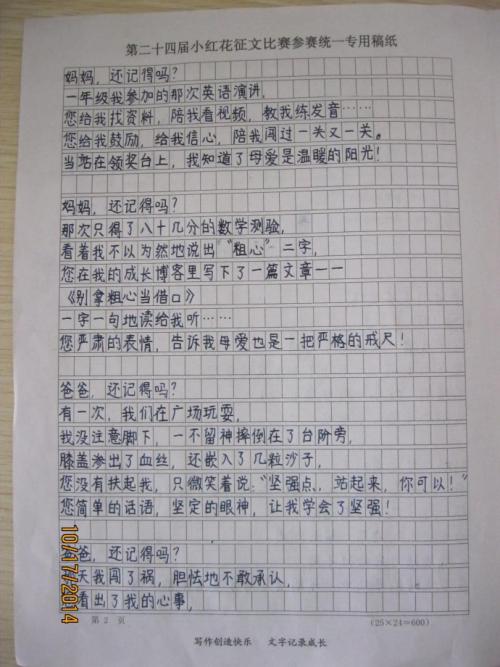 第二十四届小红花征文比赛参赛统一专用稿纸
妈妈，还记得吗？
一年级我参加的那次英语演讲，
您给我找资料，陪我看视频，教我练发音……
您给我鼓励，给我信心，陪我闯过一关又一关。
当站在领奖台上，我知道了母爱是温暖的阳光！
妈妈，还记得吗？
那次只得了八十几分的数学测验，
看着我不以为然地说出“粗心”二字，
您在我的成长博客里写下了一篇文章——
《别拿粗心当借口》
一字一句地读给我听……
您严肃的表情，告诉我母爱也是一把严格的戒尺！
爸爸，还记得吗？
有一次，我们在广场玩耍，
我没注意脚下，一不留神摔倒在了台阶旁，
膝盖渗出了血丝，还嵌入了几粒沙子，
您没有扶起我，只微笑着说：“坚强点，站起来，你可以！”
您简单的话语，坚定的眼神，让我学会了坚强！
爸爸，还记得吗？
天我闯了祸，胆怯地不敢承认，
看出了我的心事，
第 2 页
(25×24=600)
写作创造快乐 文字记录成长
10/17/2014